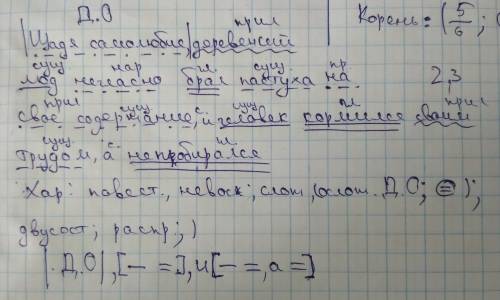 Д.О прил Корень: (5/6;
|Щадя самолюбие,|деревенский
сущ нар гл. сущ. пр
люд негласно брал пастуха на 2,3
прил сущ. с. сущ гл прил
свое содержание, и человек кормился своим
сущ. с. гл
трудом, а не пробирался
Хар: повест., невоск; слож, (ослож. Д.О; ⊜);
двусост; распр;)
|.Д.О|,[— =], и [— =, а =]